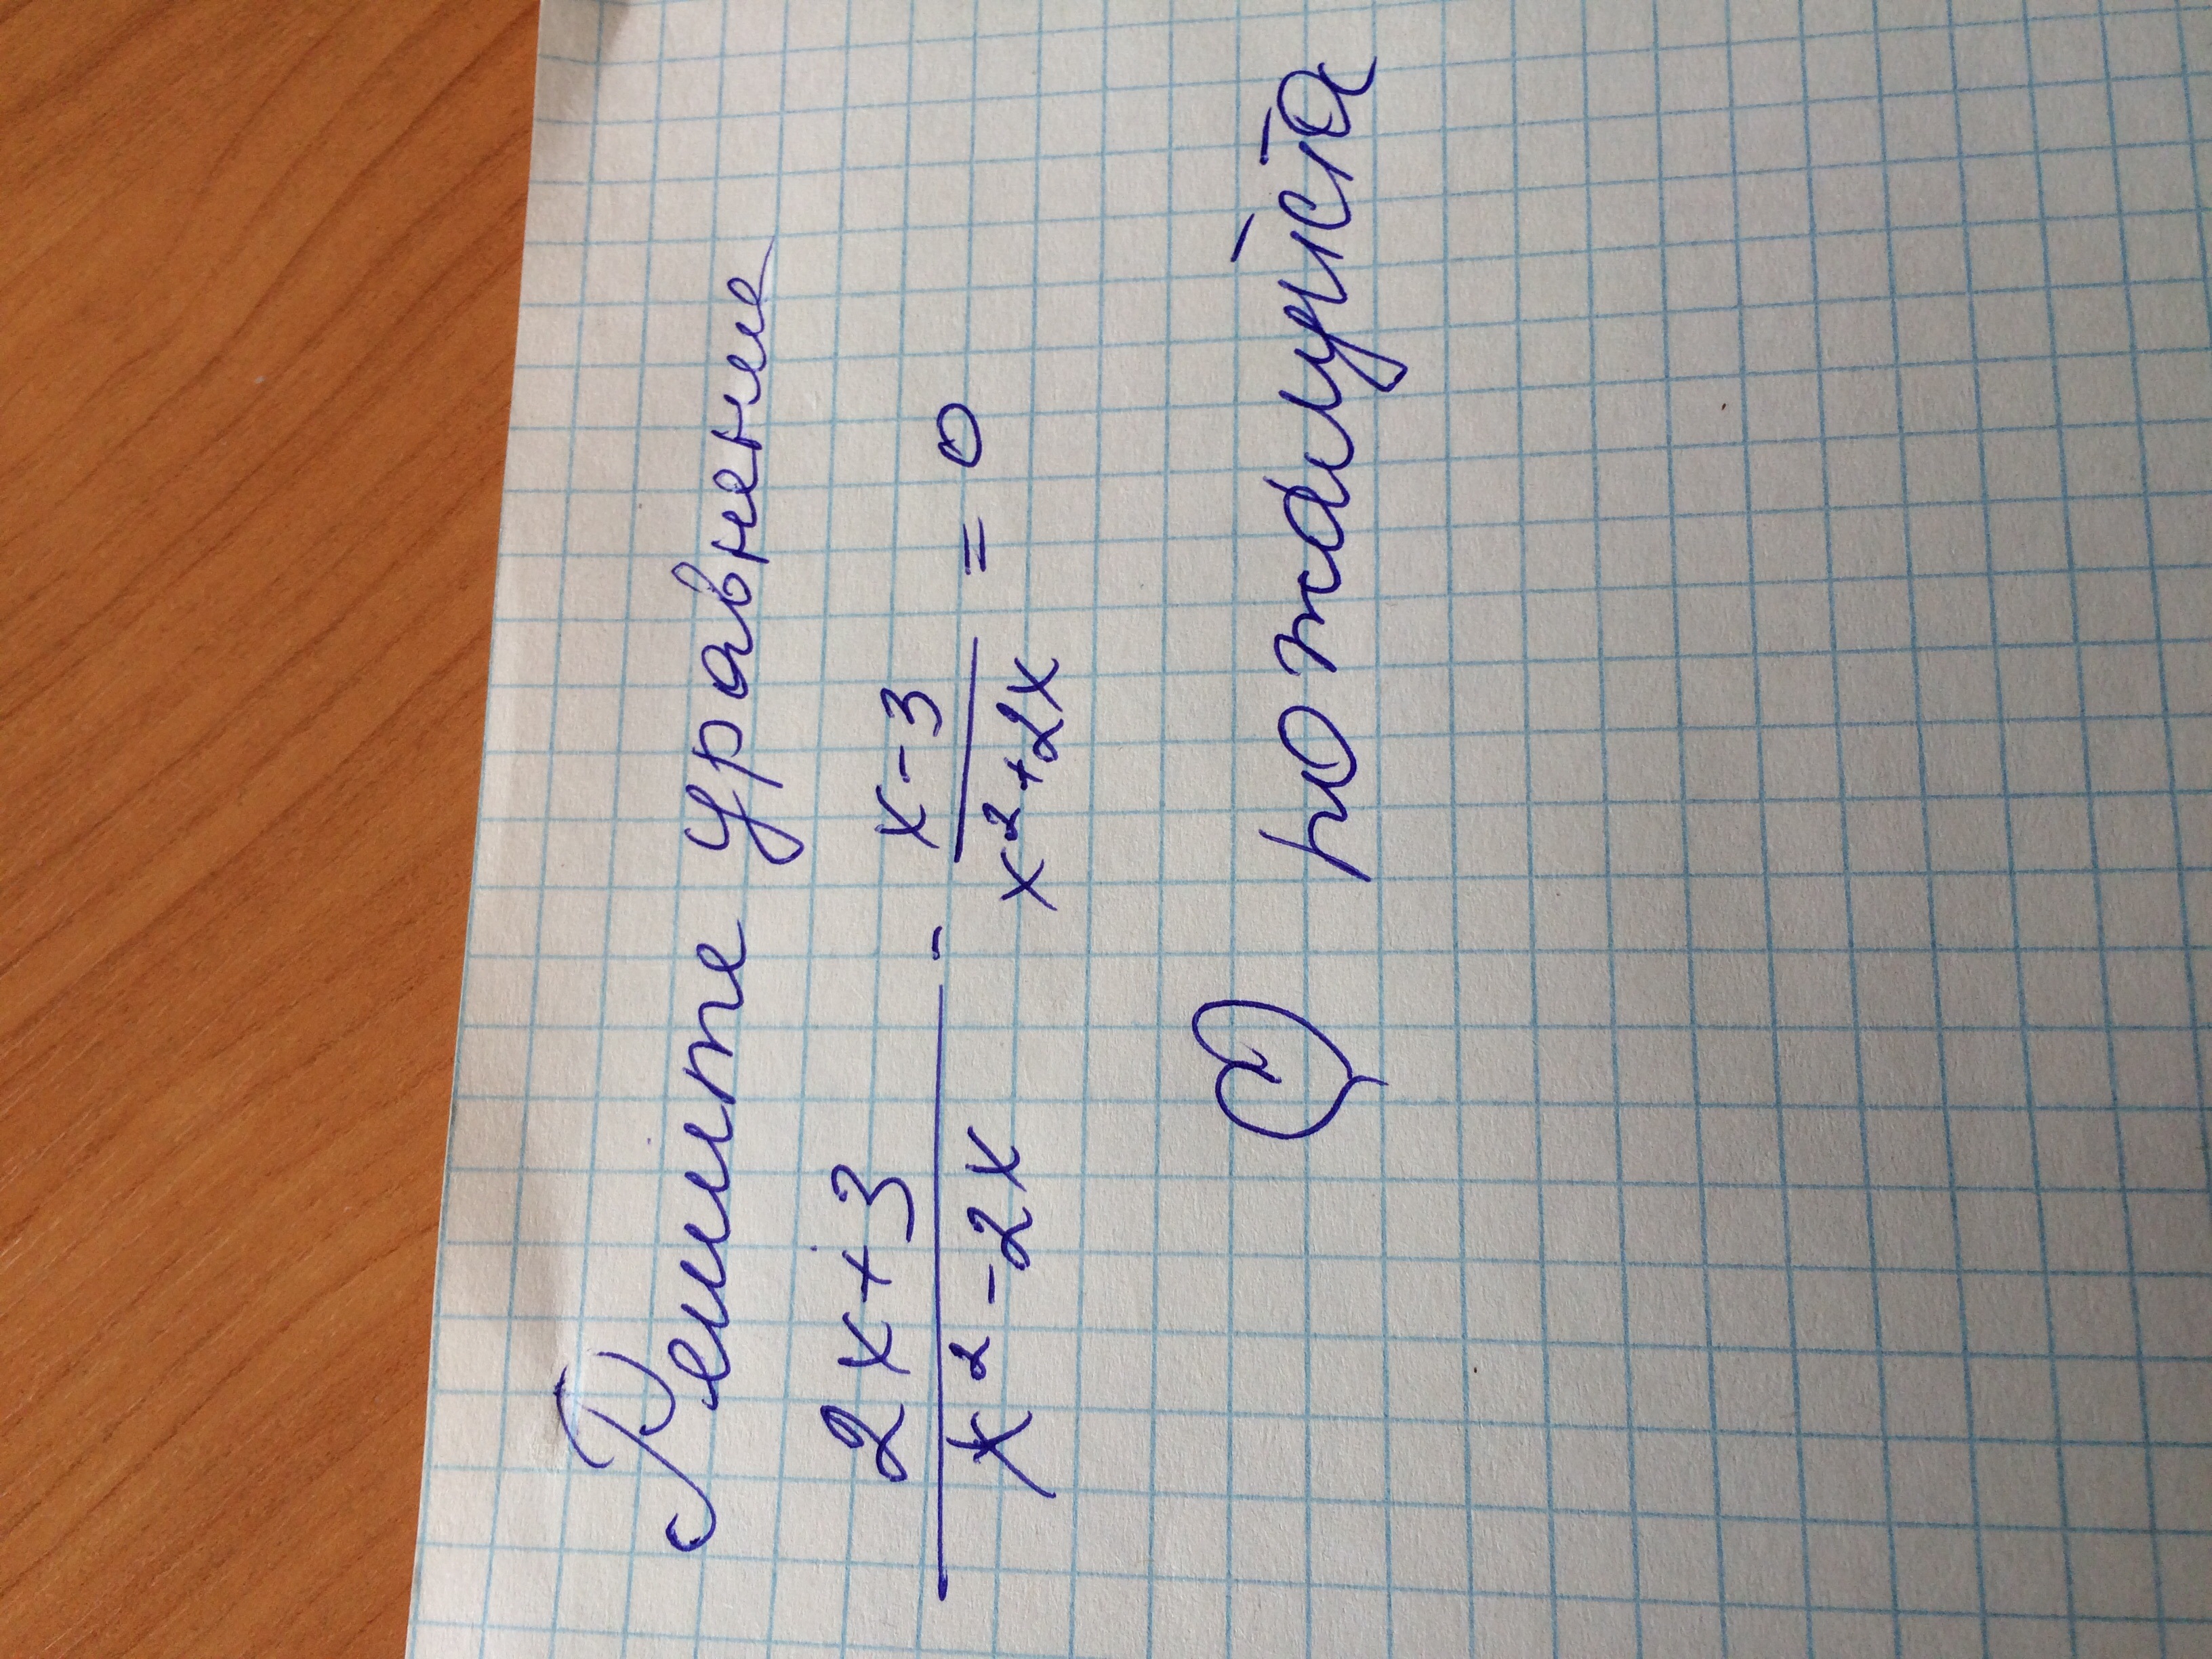 Решите уравнение
2x+3 / x²-2x - x-3 / x²+2x = 0
пожалуйста